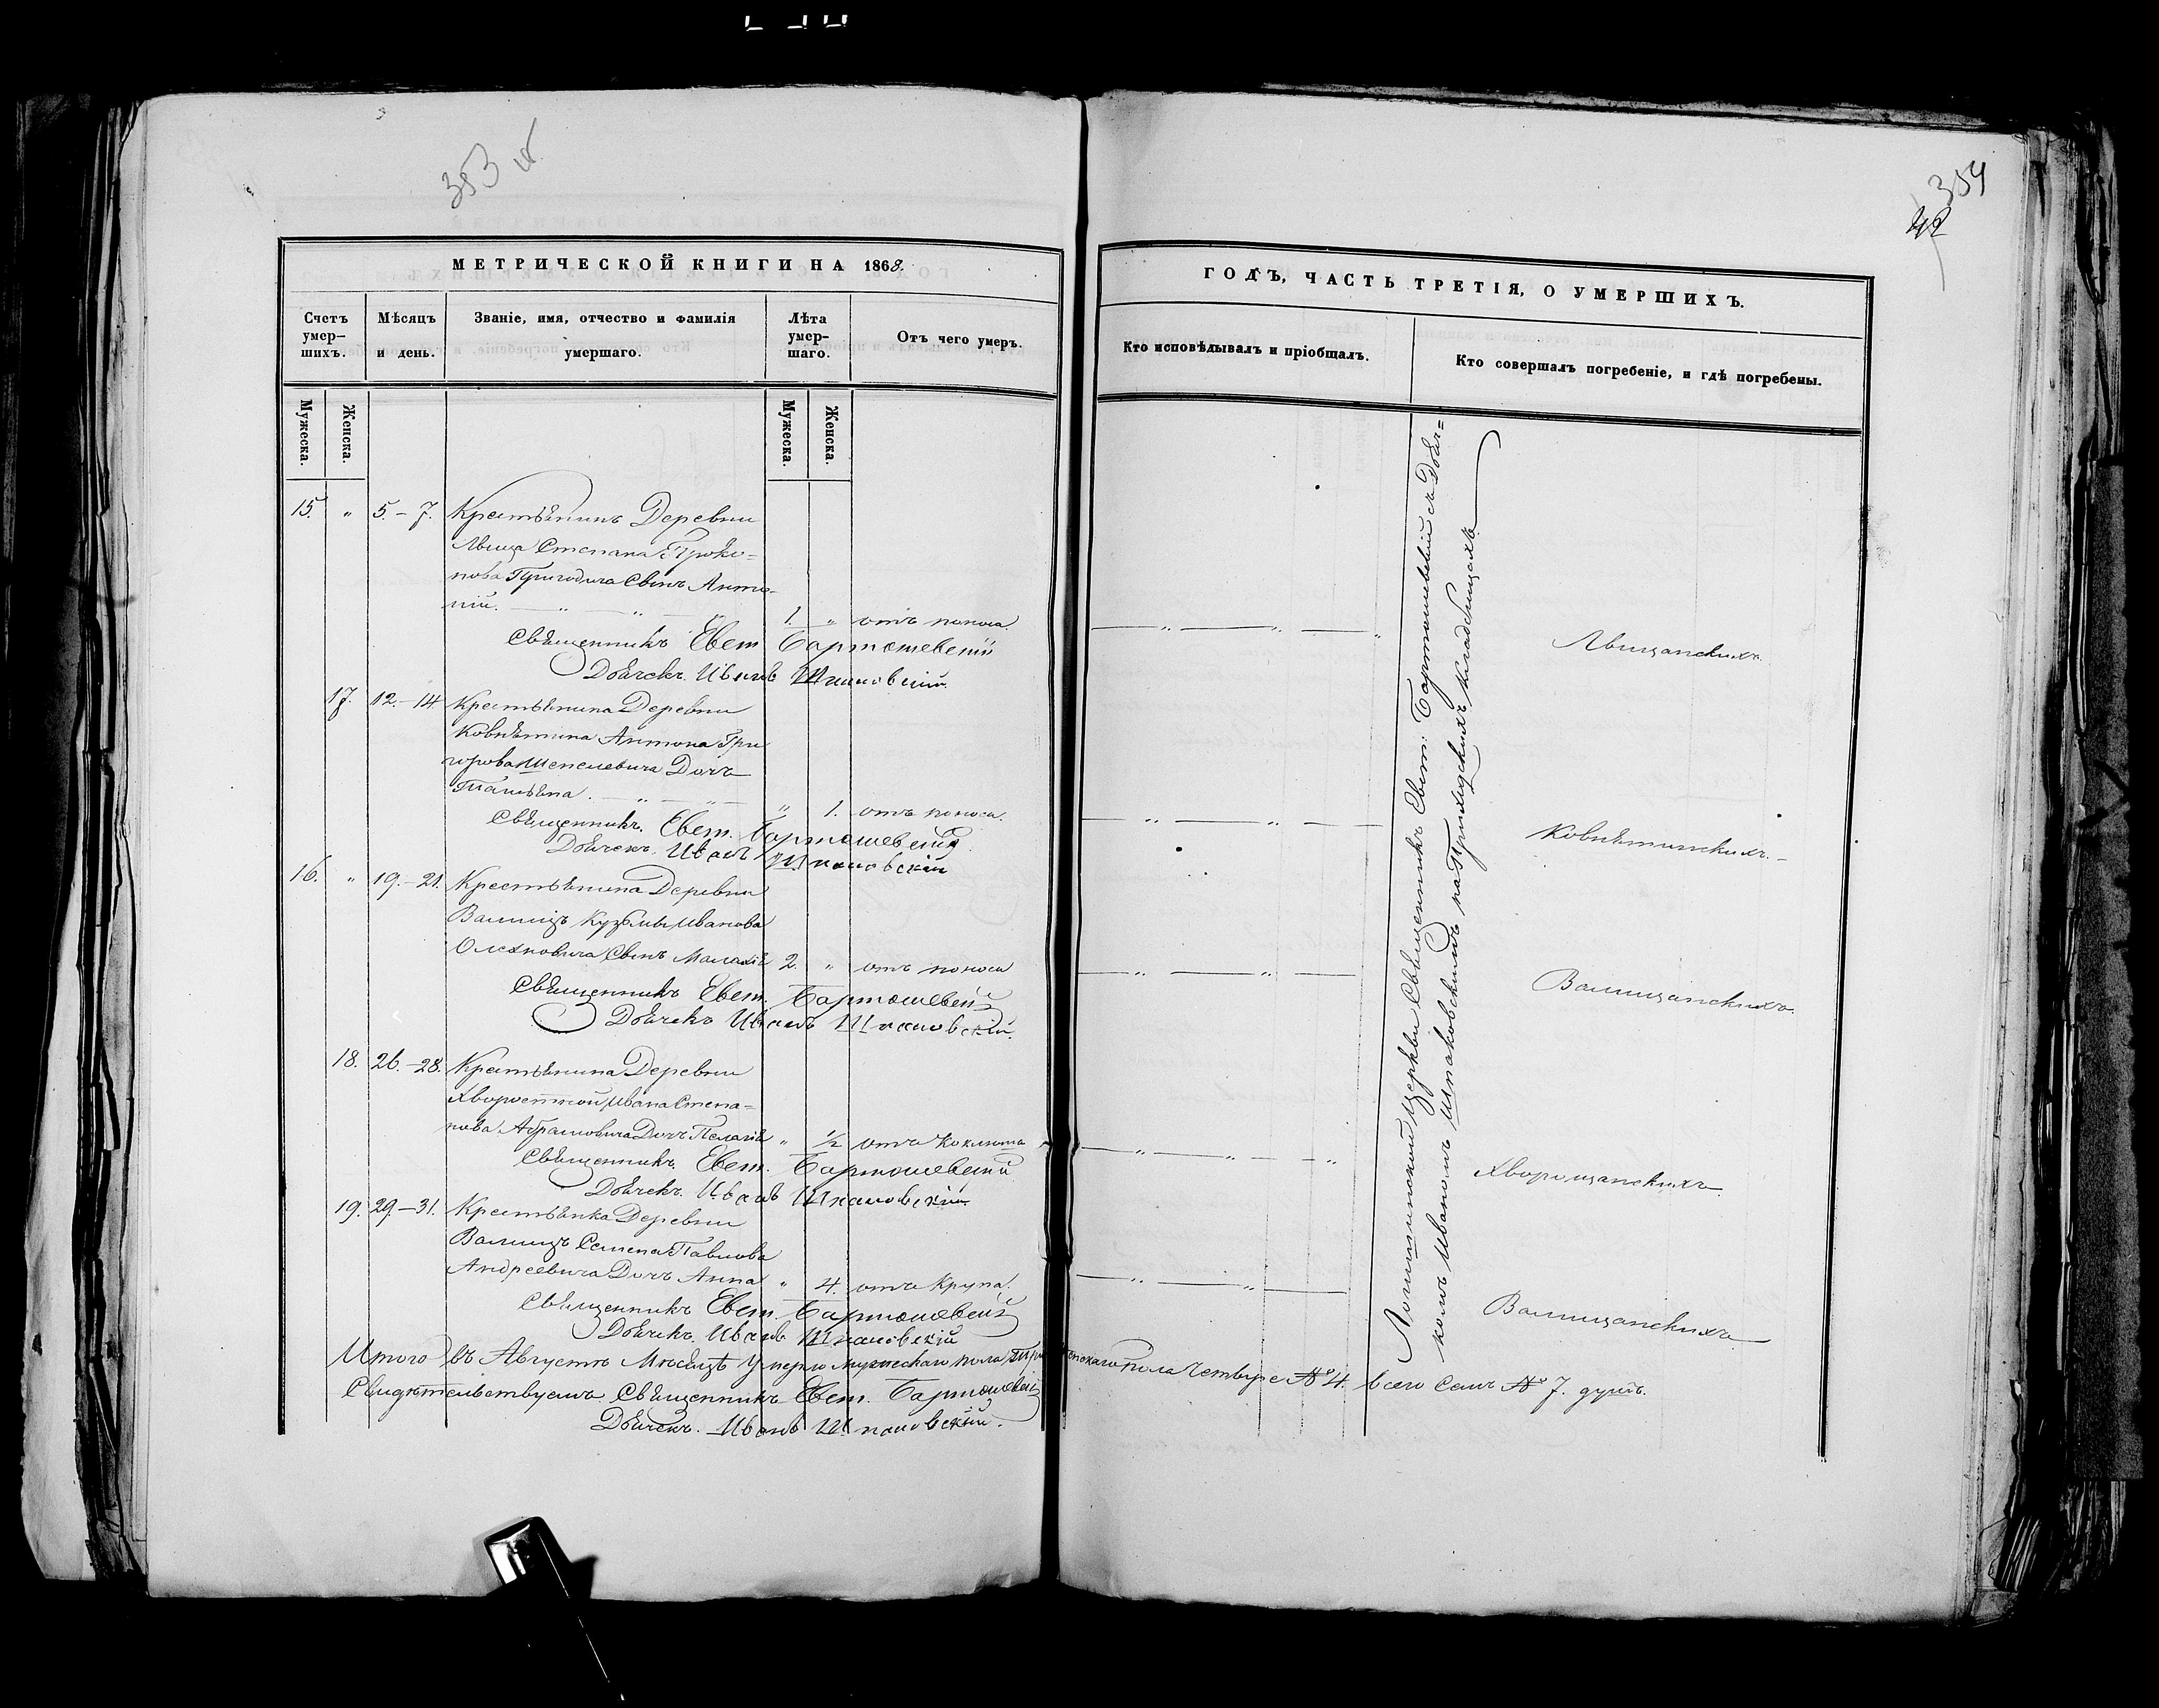 353 об.
354
42
МЕТРИЧЕСКОЙ КНИГИ НА 1868.
Счетъ умер—шихъ.
Мѣсяцъ и день.
Званіе, имя, отчество и фамилія умершаго.
Лѣта умер-шаго.
Отъ чего умеръ.
Мужеска.
Женска.
Мужеска.
Женска.
15. " 5.-7. Крестьянинъ Деревни
Лвища Степана Проко=
пова Григодича Сынъ Анто-
ній. — " — " — " 1. " отъ поноса.
Священникъ Евст. Бартошевскій
Дьячекъ. Иванъ Шпаковскій.
17. 12.-14. Крестьянина Деревни
Ковнятина Антона Гри
горова Шепелевича Дочь
Татьяна. — " — " — " 1. отъ поноса.
Священникъ. Евст. Бартошевскій
Дьячекъ. Иванъ Шпаковскій
16. " 19.-21. Крестьянина Деревни
Валищъ Кузьмы Иванова
Олехновича Сынъ Малахій 2. " отъ поноса
Священникъ Евст. Бартошевскій
Дьячекъ Иванъ Шпаковскій.
18. 26.-28. Крестьянина Деревни
Хворостной Ивана Степа=
нова Абрамовича Дочь Пелагія " 1/2 отъ Коклюша
Священникъ. Евст. Бартошевскій
Дьячекъ. Иванъ Шпаковскій.
19. 29.-31. Крестьянка Деревни
Валищъ Семена Павлова
Андреевича Дочь Анна " 4. отъ Крупа.
Священникъ Евст. Бартошевскій
Дьячекъ. Иванъ Шпаковскій
Итого въ Августѣ Мѣсяцѣ умерло мужескаго пола Три женскаго пола Четыре № 4. всего Семь № 7. душъ.
Свидѣтельствуемъ Священникъ Евст. Бартошевскій
Дьячекъ. Иванъ Шпаковскій.
ГОДЪ, ЧАСТЬ ТРЕТІЯ, О УМЕРШИХЪ.
Кто исповѣдывалъ и пріобщалъ.
Кто совершалъ погребеніе, и гдѣ погребены.
церкви Священникъ Евст. Бартошевскій съ Дьяч=
комъ Иваномъ Шпаковскимъ на Приходскихъ Кладбищахъ
— " — " — " Лвищанскихъ.
— " — " — Ковнятинскихъ.
— " — " — Валищанскихъ
— " — " — " Хворощанскихъ
— " — " — Валищанскихъ